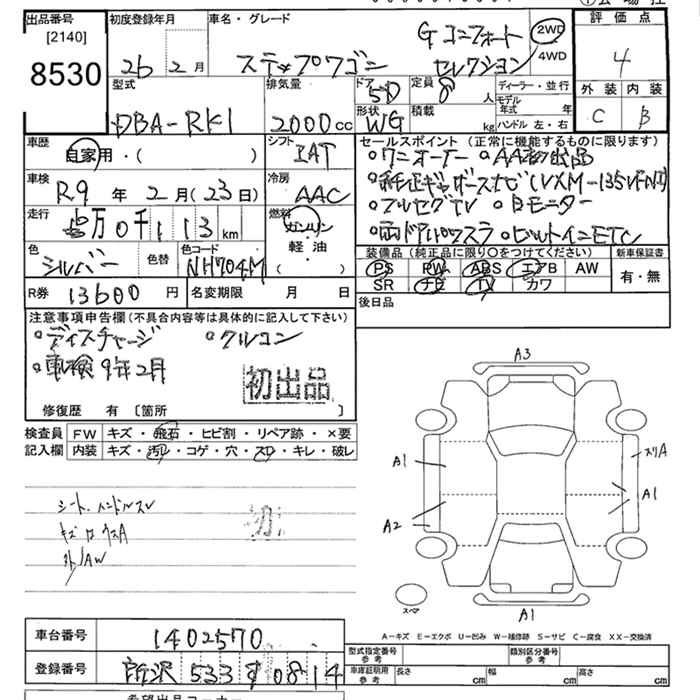 出品番号
[2140]
8530
初度登録年月
26年 2月
車名・グレード
ステップワゴン
G コンフォート
セレクション
2WD
4WD
評価点
4
外装 内装
C B
型式
DBA-RK1
排気量
2000cc
ドア
5D
形状
WG
定員
8人
積載
kg
ディーラー・並行
モデル
年式 年
ハンドル 左・右
車歴
自家用・( )
シフト
IAT
車検
R9年 2月(23日)
冷房
AAC
走行
万0千113km
燃料
ガソリン
軽油
( )
色
シルバー
色替
色コード
NH704M
R券 13600円
名変期限 月 日
セールスポイント(正常に機能するものに限ります)
・ワンオーナー ・AA初出品
・純正ギャザーズナビ(VXM-135VFNI)
・フルセグTV ・Bモニター
・両ドアパワスラ ・ビルトインETC
装備品(純正品に限り○をつけてください)
新車保証書
PS PW ABS エアB AW
SR ナビ TV カワ
有・無
後日品
注意事項申告欄(不具合内容等は具体的に記入して下さい)
・ディスチャージ ・クルコン
・車検9年2月
初出品
修復歴 有 〔箇所 〕
検査員
記入欄
FW キズ・飛石・ヒビ割・リペア跡・×要
内装 キズ・汚レ・コゲ・穴・スレ・キレ・破レ
シート、ハンドルスレ
A3
A1
A2
スリA
A1
A1
スペア
A-キズ E-エクボ U-凹み W-補修跡 S-サビ C-腐食 XX-交換済
車台番号
1402570
登録番号
所沢 533 す 0814
型式指定番号
参考
類別区分番号
参考
車庫証明用
参考
長さ cm 幅 cm 高さ cm
希望出品コーナー